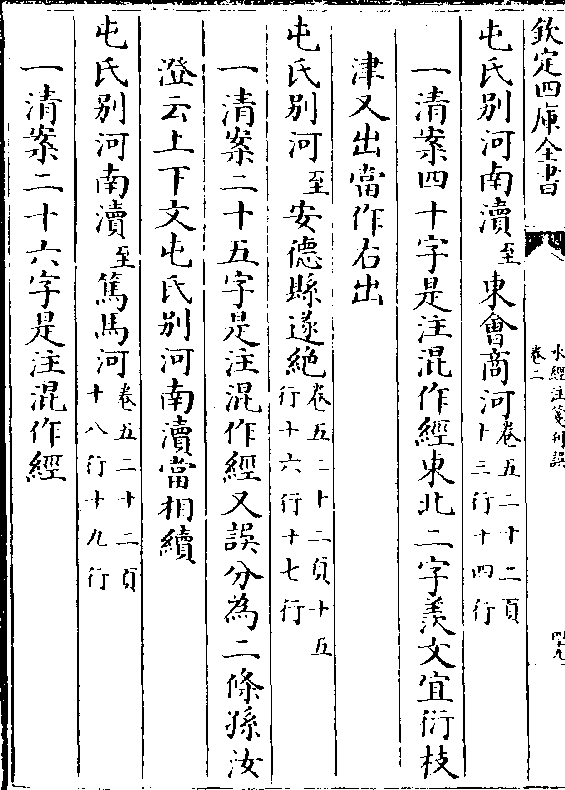 欽定四庫全書
水經注箋刊誤
卷二
四十九
屯氏別河南瀆至東會商河卷五二十二頁
十三行十四行
一清案四十字是注混作經東北二字羨文宜衍枝
津又出當作右出
屯氏別河至安德縣遂絶卷五二十二頁十五
行十六行十七行
一清案二十五字是注混作經又誤分為二條孫汝
澄云上下文屯氏別河南瀆當相續
屯氏別河南瀆至篤馬河卷五二十二頁
十八行十九行
一清案二十六字是注混作經